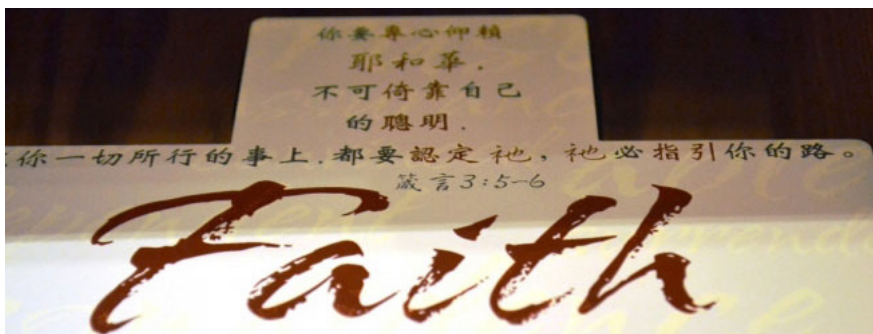 你要專心仰賴
耶和華.
不可倚靠自己
的聰明.
你一切所行的事上.都要認定祂,祂必指引你的路。
箴言3:5-6
Faith